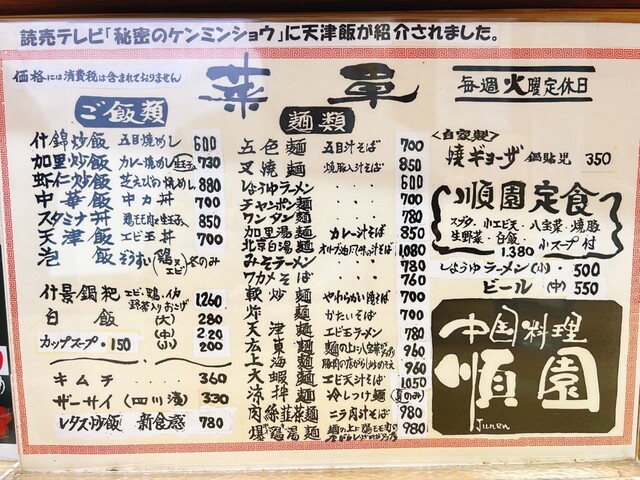 読売テレビ「秘密のケンミンショウ」に天津飯が紹介されました。
価格には消費税は含まれておりません
菜單
毎週火曜定休日
ご飯類
什錦炒飯 五目焼めし 600
加里炒飯 カレー焼めし 生玉子 730
蝦仁炒飯 芝えび入り焼めし 880
中華飯 中カ丼 700
スタミナ丼 850
天津飯 エビ玉丼 700
泡飯 ぞうすい(鶏又エビ)冬のみ
什景鍋粑 エビ・鶏・イカ 野菜入りおこげ 1,260
白飯 (大) 280
(中) 220
(小) 200
カップスープ・150
キムチ 360
ザーサイ(四川漬) 330
レタス炒飯 新食感 780
麺類
五色麺 五目汁そば 700
叉焼麺 焼豚入汁そば 850
しょうゆラーメン 600
チャンポン麺 700
ワンタン麺 780
加里湯麺 カレー汁そば 850
北京白湯麺 1,080
みそラーメン 780
ワカメそば 760
軟炒麺 やわらかい焼そば 700
炸麺 かたいそば 700
天津麺 エビ玉ラーメン 780
広東麺 960
上海麺 960
大蝦麺 エビ天汁そば 1,050
涼拌麺 冷しつけ麺 夏のみ
肉絲韮菜麺 ニラ肉汁そば 780
爆鶏湯麺 980
<自家製>
焼ギョーザ 鍋貼児 350
順園定食
スブタ・小エビ天・八宝菜・焼豚
生野菜・白飯・小スープ付
1,380
しょうゆラーメン(小)・500
ビール (中) 550
中国料理
順園
Junen